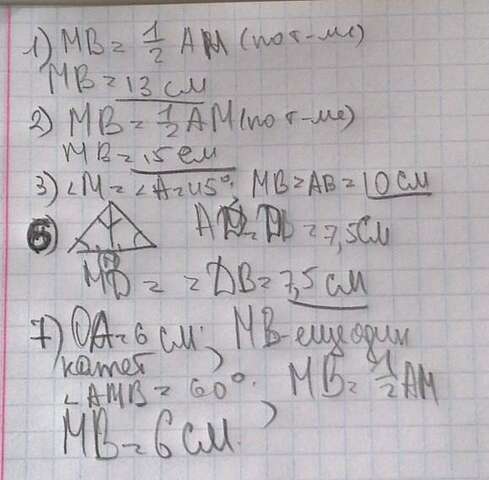 1) MB = 1/2 AM (по т-ме)
MB = 13 см
2) MB = 1/2 AM (по т-ме)
MB = 15 см
3) ∠M = ∠A = 45°. MB = AB = 10 см
= DB = 7,5 см
MD = = DB = 7,5 см
7) OA = 6 см; MB - еще один
катет
∠AMB = 60°; MB = 1/2 AM
MB = 6 см.